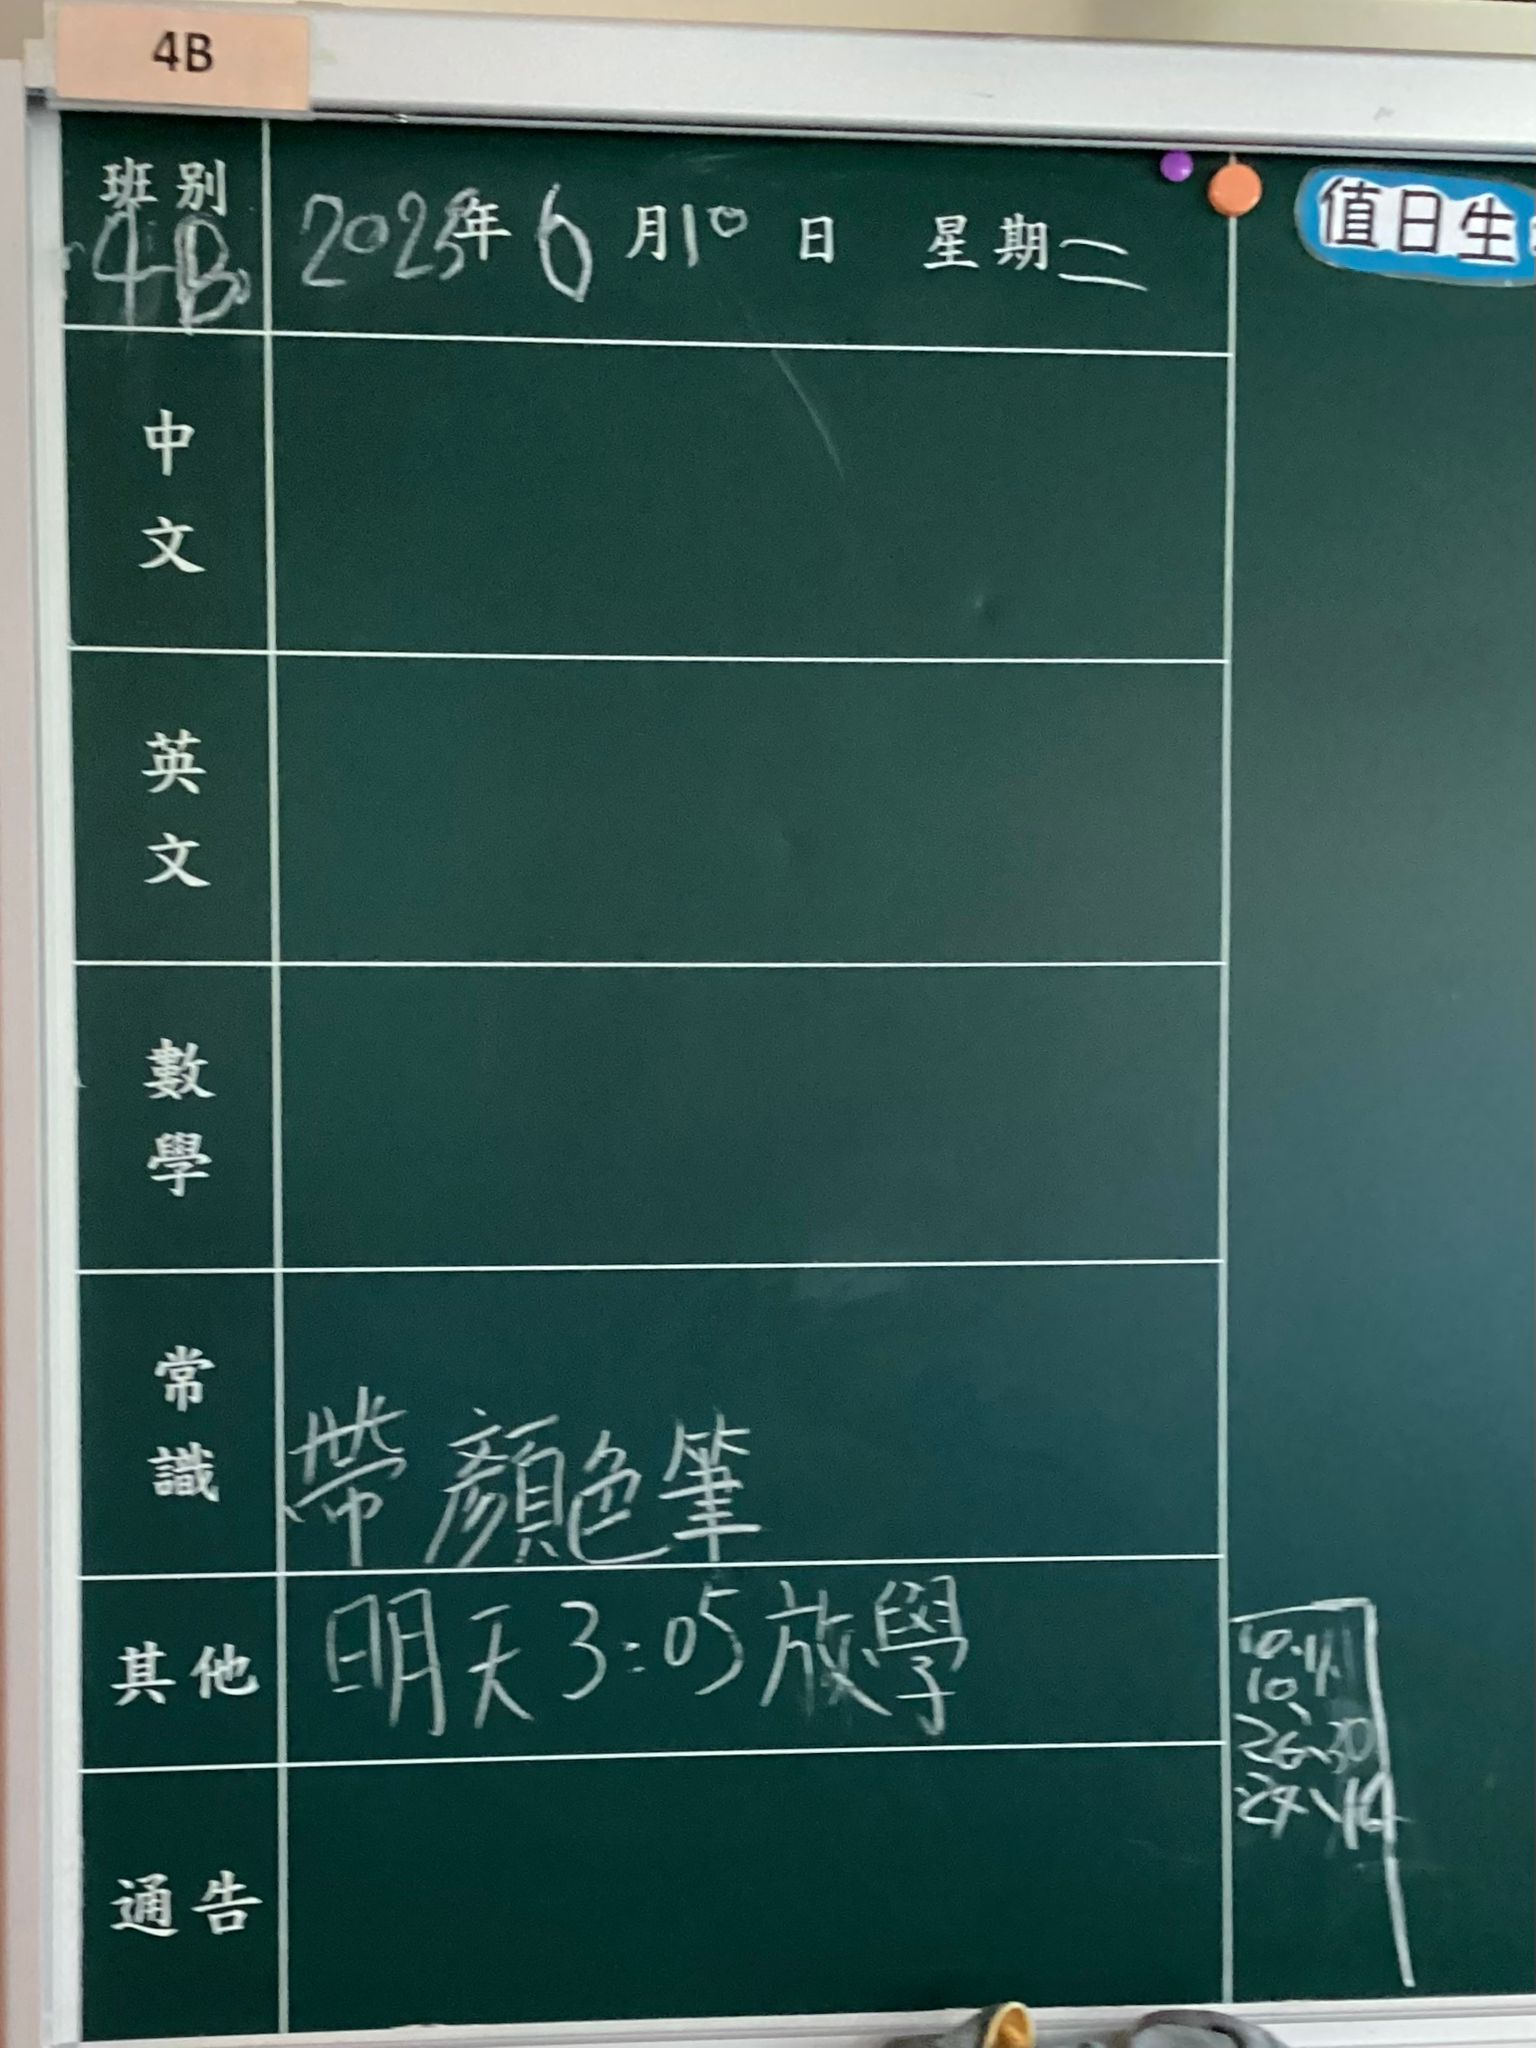 4B
班別
4B
2025年6月10日 星期二
值日生
中文
英文
數學
常識
帶顏色筆
其他
明天3:05放學
10、11
10、
26、30
通告